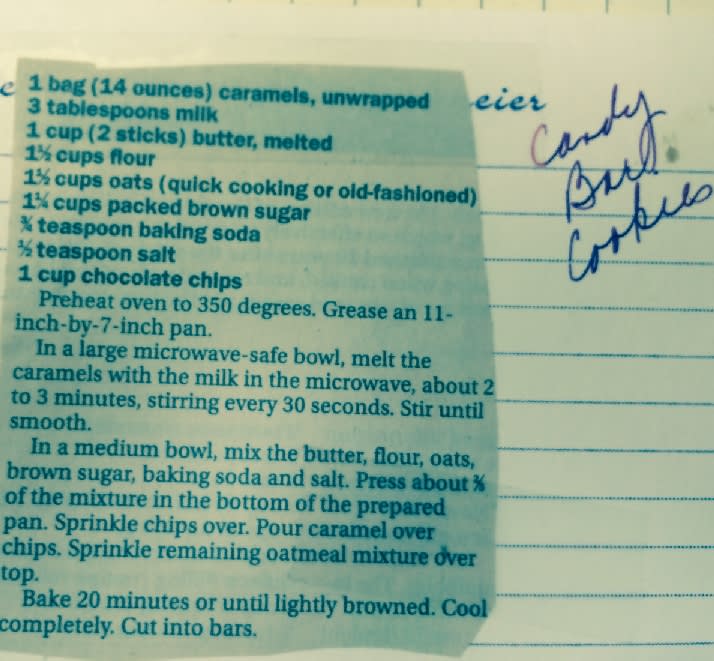 1 bag (14 ounces) caramels, unwrapped
3 tablespoons milk
1 cup (2 sticks) butter, melted
1½ cups flour
1½ cups oats (quick cooking or old-fashioned)
1¼ cups packed brown sugar
¾ teaspoon baking soda
½ teaspoon salt
1 cup chocolate chips
Preheat oven to 350 degrees. Grease an 11-
inch-by-7-inch pan.
In a large microwave-safe bowl, melt the
caramels with the milk in the microwave, about 2
to 3 minutes, stirring every 30 seconds. Stir until
smooth.
In a medium bowl, mix the butter, flour, oats,
brown sugar, baking soda and salt. Press about ⅔
of the mixture in the bottom of the prepared
pan. Sprinkle chips over. Pour caramel over
chips. Sprinkle remaining oatmeal mixture over
top.
Bake 20 minutes or until lightly browned. Cool
completely. Cut into bars.
eier
Candy
Bar
Cookies